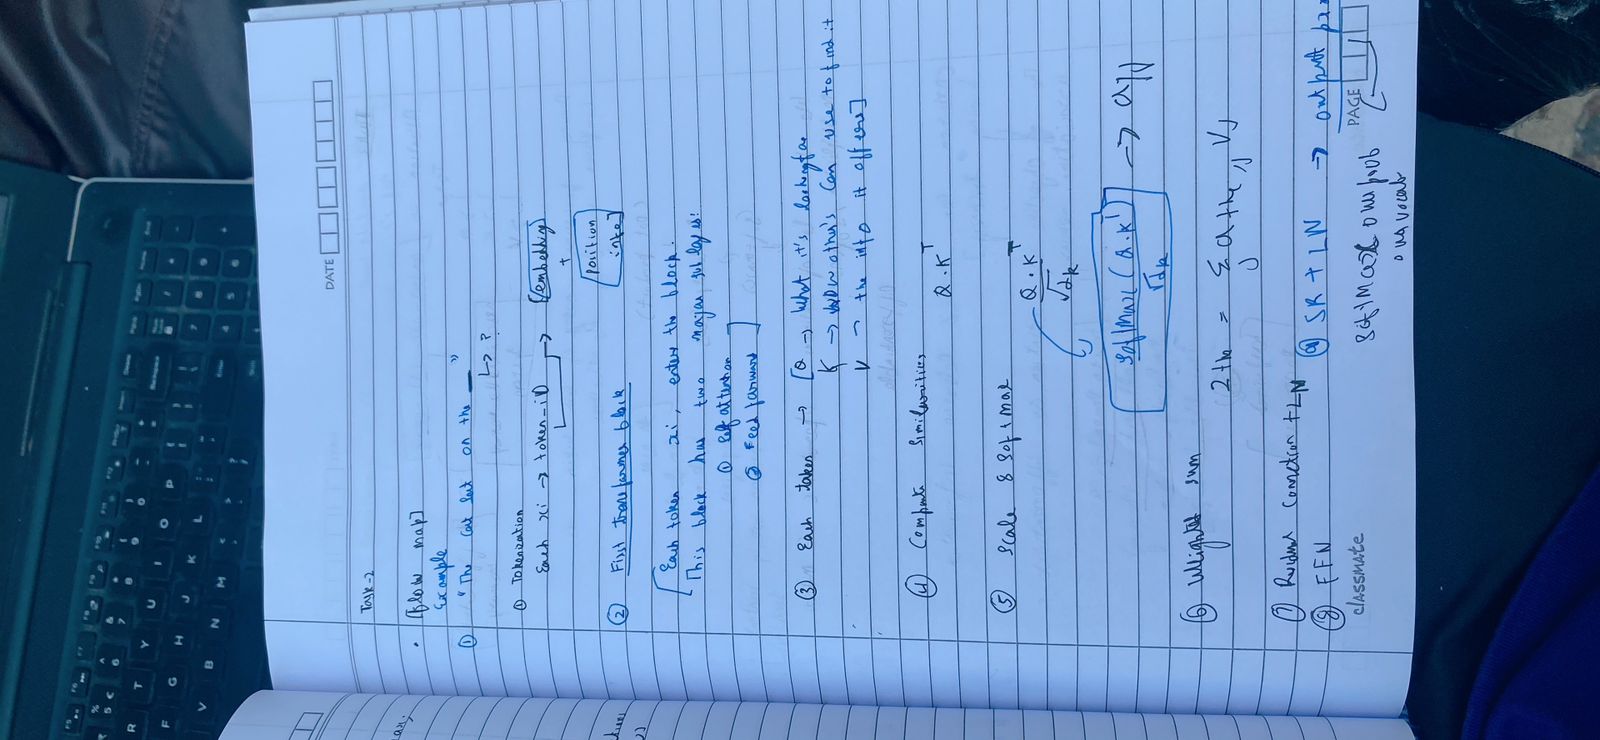 DATE
Task-2
• [Flow map]
Example
① "The cat sat on the __"
↳ ?
① Tokenization
Each xi → token-iD → [embedding]
+
[position info]
② First transformer block
[Each token xi, enters the block.
This block has two major sublayers:
① Self attention
② Feed forward]
③ Each token → [Q → What it's looking for
K → others can use to find it
V → the info it offers]
④ Compute similarities
Q·K^T
⑤ Scale & Softmax
Q·K^T
√dk
Softmax(Q·K^T) → aij
√dk
⑥ Weighted sum
= Σ Vj
j
⑦ Residual connection + LN
⑧ FFN
⑨ SR + LN → output
Softmax prob
on vocab
classmate
PAGE